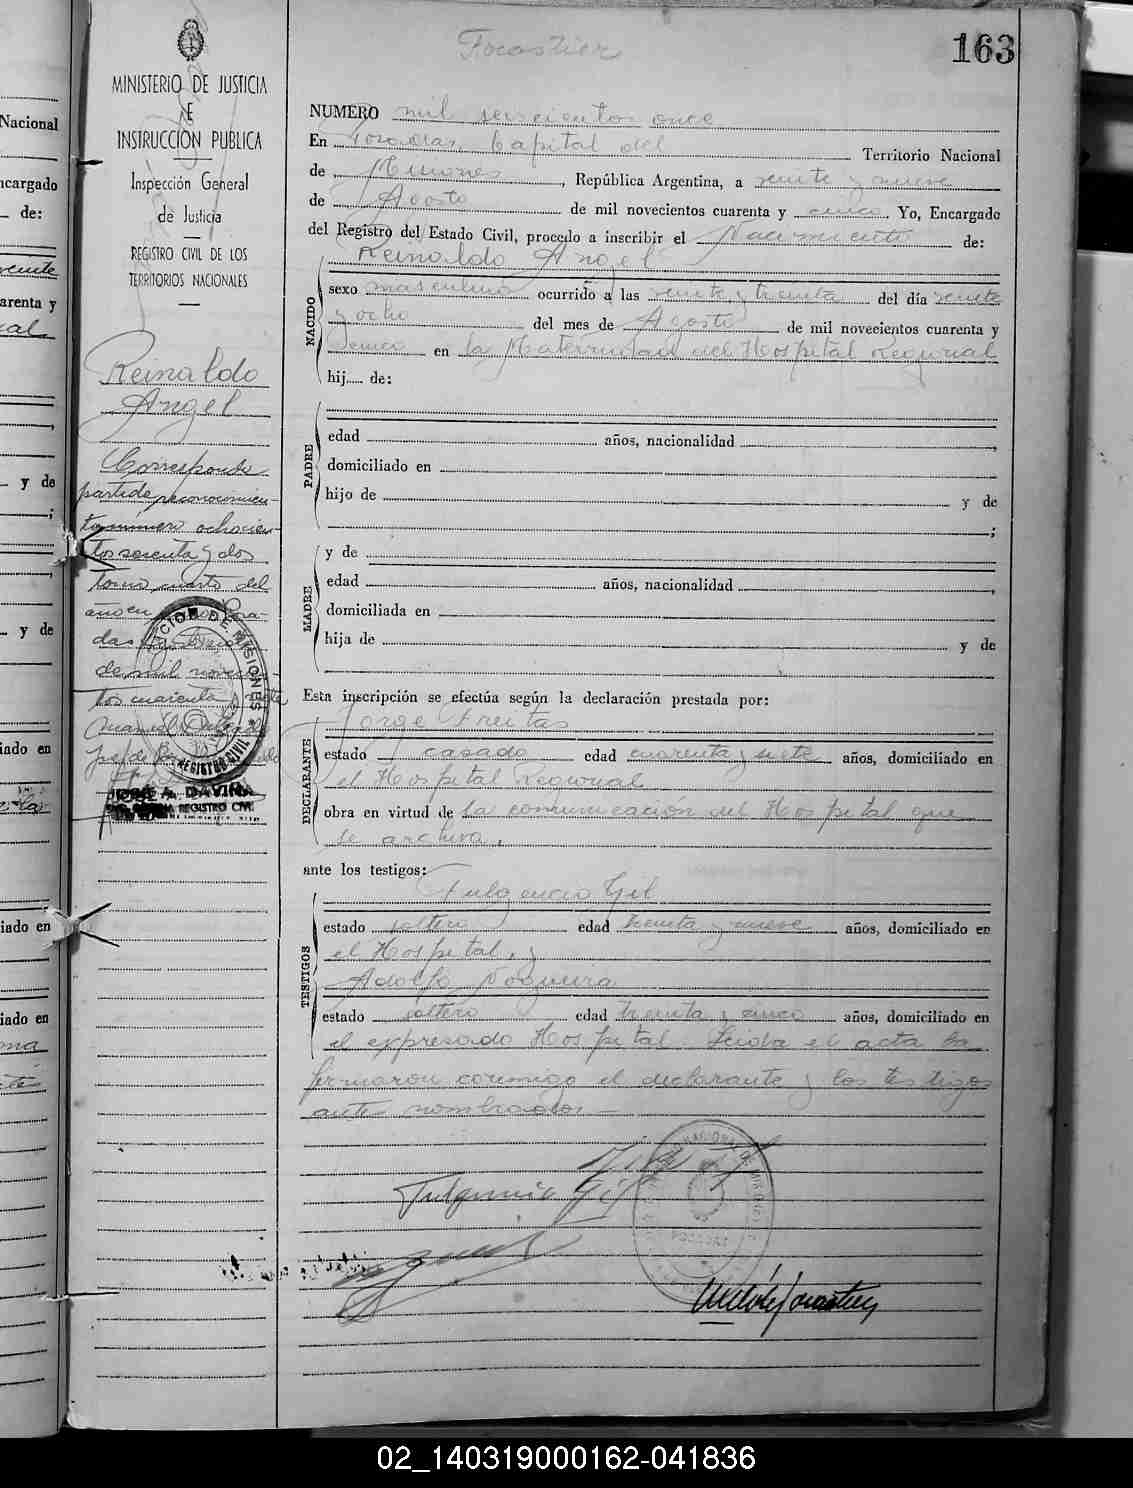 163
Nacional
MINISTERIO DE JUSTICIA
E
INSTRUCCIÓN PUBLICA
Inspección General
de Justicia
REGISTRO CIVIL DE LOS
TERRITORIOS NACIONALES
NUMERO mil seiscientos once
En Posadas, Capital del Territorio Nacional
de Misiones, República Argentina, a veinte y nueve
de Agosto de mil novecientos cuarenta y cinco Yo, Encargado
del Registro del Estado Civil, procedo a inscribir el Nacimiento de:
NACIDO
Reinaldo Angel
sexo masculino ocurrido a las veinte y treinta del día veinte
y ocho del mes de Agosto de mil novecientos cuarenta y
cinco en la Maternidad del Hospital Regional
hij..... de:
PADRE
edad años, nacionalidad
domiciliado en
hijo de y de
;
MADRE
y de
edad años, nacionalidad
domiciliada en
hija de y de
Esta inscripción se efectúa según la declaración prestada por:
DECLARANTE
Jorge Freitas
estado casado edad cuarenta y siete años, domiciliado en
el Hospital Regional
obra en virtud de la comunicación del Hospital que
se archiva.
ante los testigos:
TESTIGOS
Fulgencio Gil
estado soltero edad treinta y nueve años, domiciliado en
el Hospital, y
Adolfo Nogueira
estado soltero edad treinta y cinco años, domiciliado en
el expresado Hospital. Leida el acta la
firmaron conmigo el declarante y los testigos
antes nombrados
Fulgencio Gil
Reinaldo
Angel
Corresponde
partida reconocimien-
to número ochocien-
tos sesenta y dos
tomo cuarto del
año en Posa-
das
de mil novecien-
tos cuarenta
MISIONES
REGISTRO CIVIL
JOSE A. DAVIÑA
REGISTRO CIVIL
02_140319000162-041836